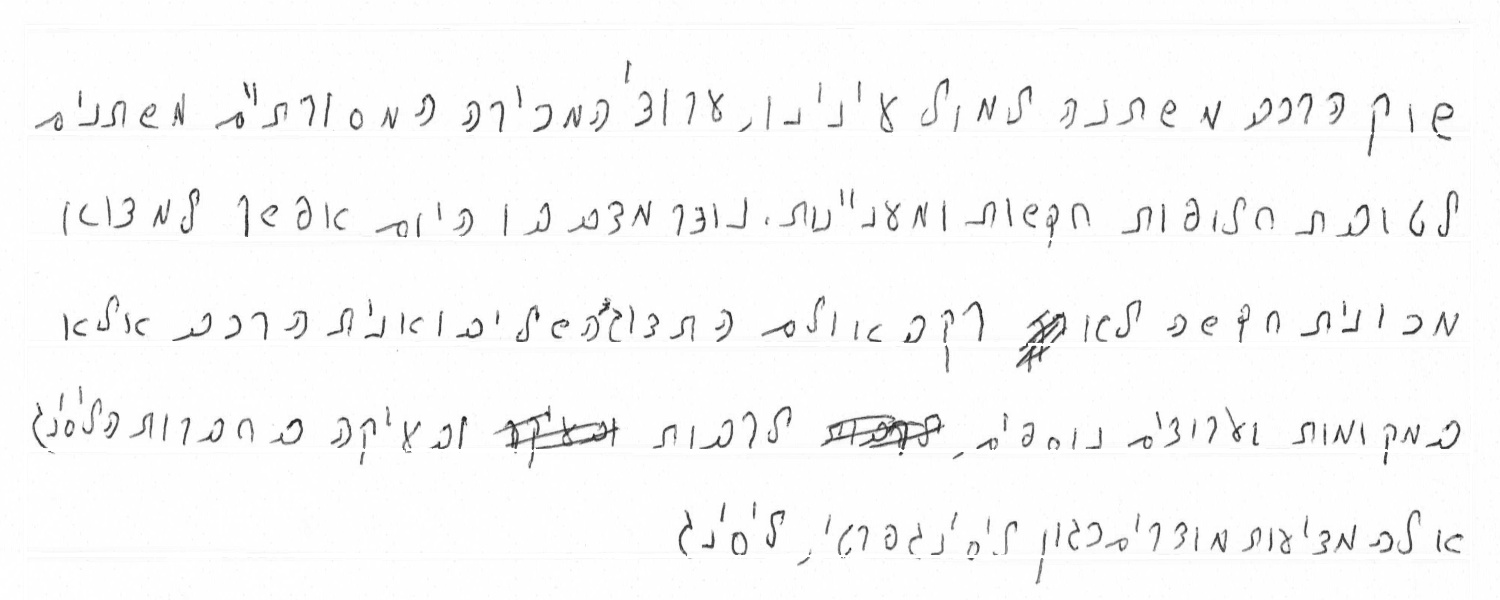 שוק הרכב משתנה למול עינינו, ערוצי המכירה המסורתיים משתנים
לטובת חלופות חדשות ומעניינות. נוצר מצב בו היום אפשר למצוא
מכונית חדשה לאו רק באולם התצוגה של יבואנית הרכב אלא
במקומות וערוצים נוספים, לרבות ובעיקר בחברות הליסינג
אלה מציעות מוצרים כגון ליסינג פרטי, ליסינג